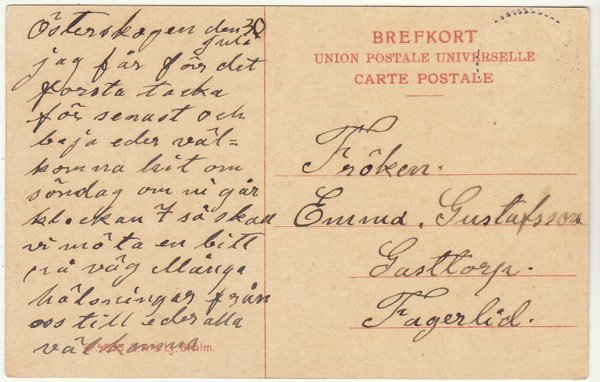 Österskogen den 30
Juli
jag får för det
forsta tacka
för senast och
beja eder väl=
komna hit om
söndag om ni går
klockan 7 så skall
vi möta en bitt
på väg Många
hälsningar från
oss till eder alla
välkomna
BREFKORT
UNION POSTALE UNIVERSELLE
CARTE POSTALE
Fröken.
Emma. Gustafsson
Gasttorp.
Fagerlid.